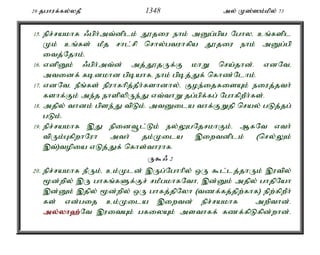 29 தபாரக்கல்லதீ 1348 அல் முஸ்ஸம்மில் 73
15. நிச்சயமாக ஃபிர்அவ்னிடம் தூதரை நாம் அனுப்பிய போல, உங்களிடமும் உங்கள் மீது சாட்சி சொல்பவராகிய தூதரை நாம் அனுப்பி வைத்தோம்.
16. எனினும் ஃபிர்அவ்ன் அத்தூதருக்கு மாறு செய்தான். எனவே, அவனைக் கடினமான பிடியாக, நாம் பிடித்துக் கொண்டோம்.
17. எனவே, நீங்கள் நிராகரித்தீர்களானால், குழந்தைகளையும் நரைத்தவர்களாக்கும் அந்த நாளிலிருந்து எவ்வாறு தப்பிக்கப் போகிறீர்கள்.
18. அதில் வானம் பிளந்து விடும். அவனுடைய வாக்குறுதி செயல் படுத்தப்படும்.
19. நிச்சயமாக இது நினைவூட்டும் நல்லுபதேசமாகும். ஆகவே எவர் விரும்புகிறாரோ அவர் தம்முடைய இறைவனிடம் (செல்லும் இவ்)வழியை எடுத்துக் கொள்வாராக.
ருகூஃ 2
20. நிச்சயமாக நீரும், உம்முடன் இருப்போரில் ஒரு கூட்டத்தாரும் இரவில் மூன்றில் இரு பாகங்களுக்குச் சமீபமாகவோ, இன்னும் அதில் பாதியோ இன்னும் இதில் மூன்றில் ஒரு பாகத்திலோ (வணக்கத்திற்காக) நிற்கிறீர்கள் என்பதை உம்முடைய இறைவன் நிச்சயமாக அறிவான். அல்லாஹ்வே இரவையும் பகலையும் அளவாகக் கணக்கிடுகின்றான்.